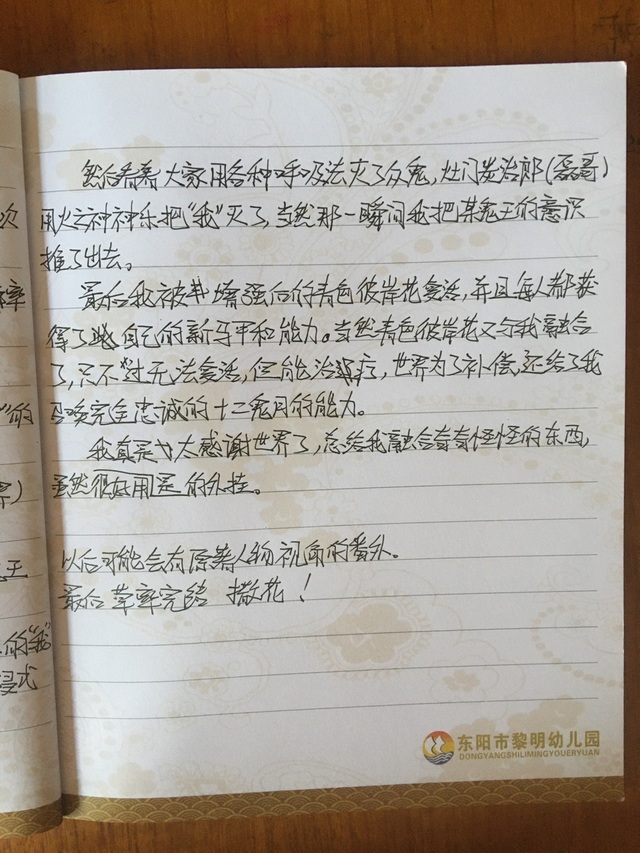 然后看着大家用各种呼吸法灭了众鬼，灶门炭治郎(磊哥)
用火之神神乐把"我"灭了，当然那一瞬间我把某鬼王的意识
推了出去。
最后我被增强后的青色彼岸花复活，并且每人都获
得了自己的新马甲和能力。当然青色彼岸花又与我融合
了，只不过无法复活，但能治疗，世界为了补偿，还给了我
召唤完全忠诚的十二鬼月的能力。
我真是太感谢世界了，总给我融合奇奇怪怪的东西，
虽然很好用是的外挂。
以后可能会有原著人物视角的番外。
最后草率完结 撒花！
次
"的
)
王
的"我"
浸式
东阳市黎明幼儿园
DONGYANGSHILIMINGYOUERYUAN